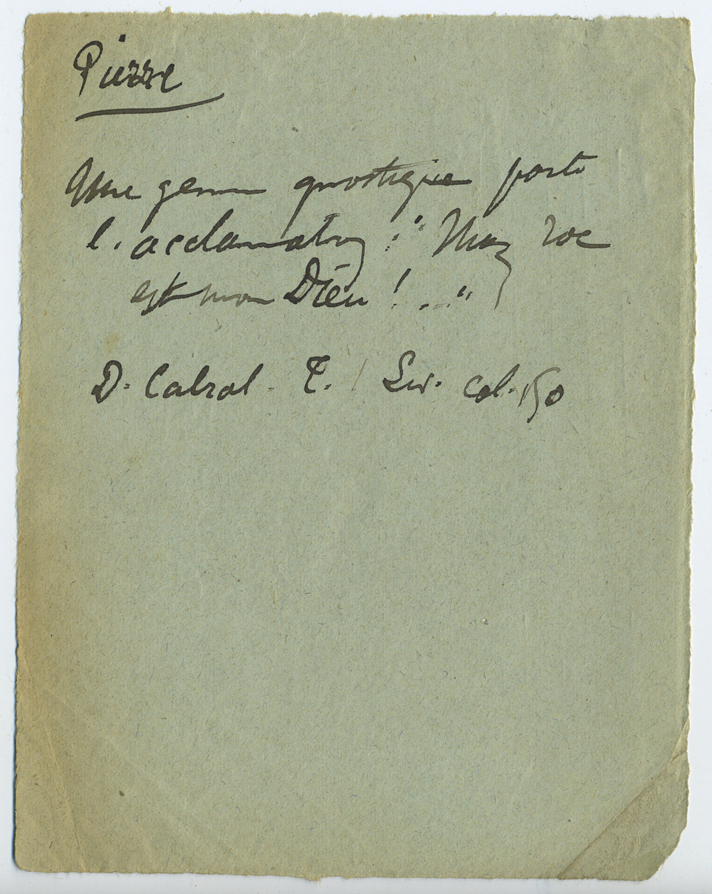 Pierre
Une gemme gnostique porte
l'acclamation : "Mon roc
est mon Dieu ! ..."
D. Cabrol. T. I col. 150